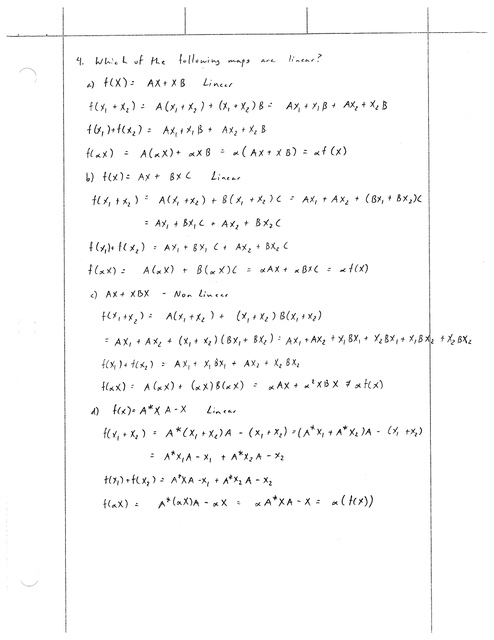 4. Which of the following maps are linear?
a) f(X) = AX + XB Linear
f(X₁ + X₂) = A(X₁ + X₂) + (X₁ + X₂)B = AX₁ + X₁B + AX₂ + X₂B
f(X₁) + f(X₂) = AX₁ + X₁B + AX₂ + X₂B
f(αX) = A(αX) + αXB = α(AX + XB) = αf(X)
b) f(X) = AX + BXC Linear
f(X₁ + X₂) = A(X₁ + X₂) + B(X₁ + X₂)C = AX₁ + AX₂ + (BX₁ + BX₂)C
= AX₁ + BX₁C + AX₂ + BX₂C
f(X₁) + f(X₂) = AX₁ + BX₁C + AX₂ + BX₂C
f(αX) = A(αX) + B(αX)C = αAX + αBXC = αf(X)
c) AX + XBX - Non Linear
f(X₁ + X₂) = A(X₁ + X₂) + (X₁ + X₂)B(X₁ + X₂)
= AX₁ + AX₂ + (X₁ + X₂)(BX₁ + BX₂) = AX₁ + AX₂ + X₁BX₁ + X₂BX₁ + X₁BX₂ + X₂BX₂
f(X₁) + f(X₂) = AX₁ + X₁BX₁ + AX₂ + X₂BX₂
f(αX) = A(αX) + (αX)B(αX) = αAX + α²XBX ≠ αf(X)
d) f(X) = A*XA - X Linear
f(X₁ + X₂) = A*(X₁ + X₂)A - (X₁ + X₂) = (A*X₁ + A*X₂)A - (X₁ + X₂)
= A*X₁A - X₁ + A*X₂A - X₂
f(X₁) + f(X₂) = A*XA - X₁ + A*X₂A - X₂
f(αX) = A*(αX)A - αX = αA*XA - X = α(f(X))